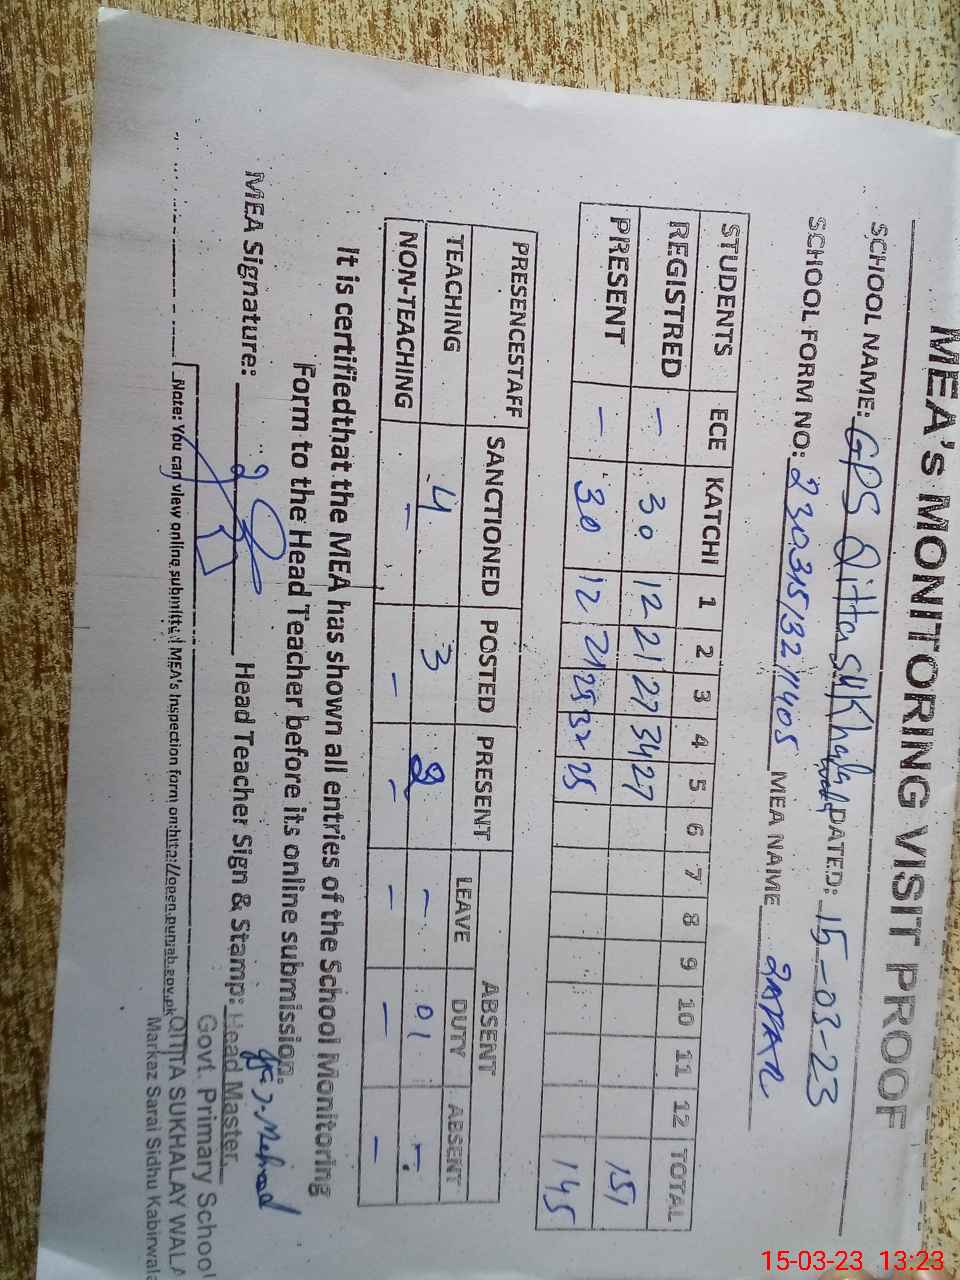 MEA's MONITORING VISIT PROOF
SCHOOL NAME: GPS Qitta Sukhalay wala DATED: 15-03-23
SCHOOL FORM NO: MEA NAME
STUDENTS ECE KATCHI 1 2 3 4 5 6 7 8 9 10 11 12 TOTAL
REGISTRED – 30 12 21 27 34 27 151
PRESENT – 30 12 21 25 32 25 145
PRESENCESTAFF SANCTIONED POSTED PRESENT ABSENT
LEAVE DUTY ABSENT
TEACHING 4 3 2 – 01 –
NON-TEACHING – – – – – –
It is certifiedthat the MEA has shown all entries of the School Monitoring
Form to the Head Teacher before its online submission.
MEA Signature: Head Teacher Sign & Stamp: Head Master
Govt. Primary School
QITTA SUKHALAY WALA
Markaz Sarai Sidhu Kabirwala
Note: You can view online submitted MEA's Inspection form on:http://open.punjab.gov.pk
15-03-23 13:23